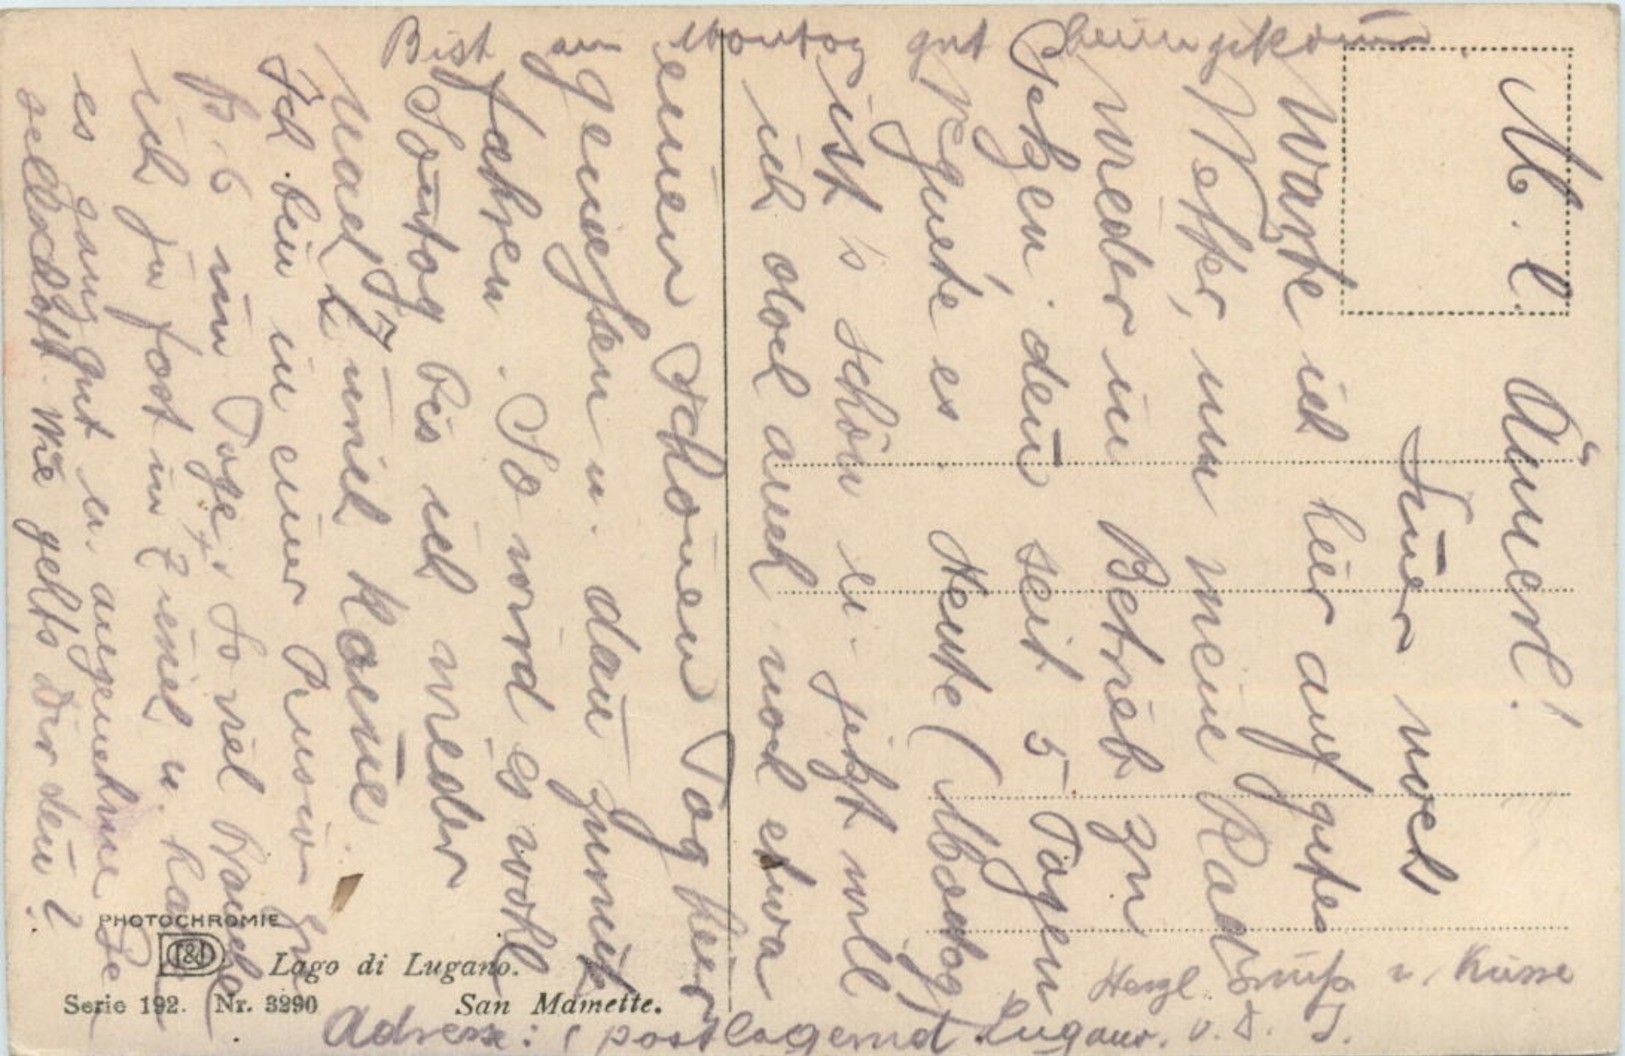 M. l. Ännerl!
Immer noch
Warte ich hier auf gutes
Wetter, um meine Rad
wieder in Betrieb zu
setzen, denn̄ seit 5 Tagen
regnete es. Heute (Montag)
ist's schön u. jetzt will
ich doch auch noch etwa
einen schönen Tag hier
geniessen u. dan̄ zurück
fahren. So wird es wohl
Sontag bis ich wieder
nach Z'rück kom̄e.
Ich bin in einer Pension zu
6 im Tage. So viel brauche
ich ja fast in Zürich u. habe
es ganz gut u. angenehme
Wie gehts Dir den̄?
Bist am Montag gut heimgekom̄en
Herzl. Gruss u. Küsse
v. D. J.
Adresse: postlagernd Lugano.
PHOTOCHROMIE
Lago di Lugano.
Serie 192. Nr. 3290 San Mamette.